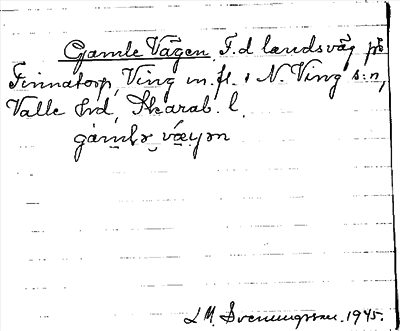 Gamle Vägen, F.d landsväg på
Finnatorp, Ving m.fl. i N. Ving s:n,
Valle hrd, Skarab. l.
gàmlə vǽyən
L M. Svenungsson. 1945.